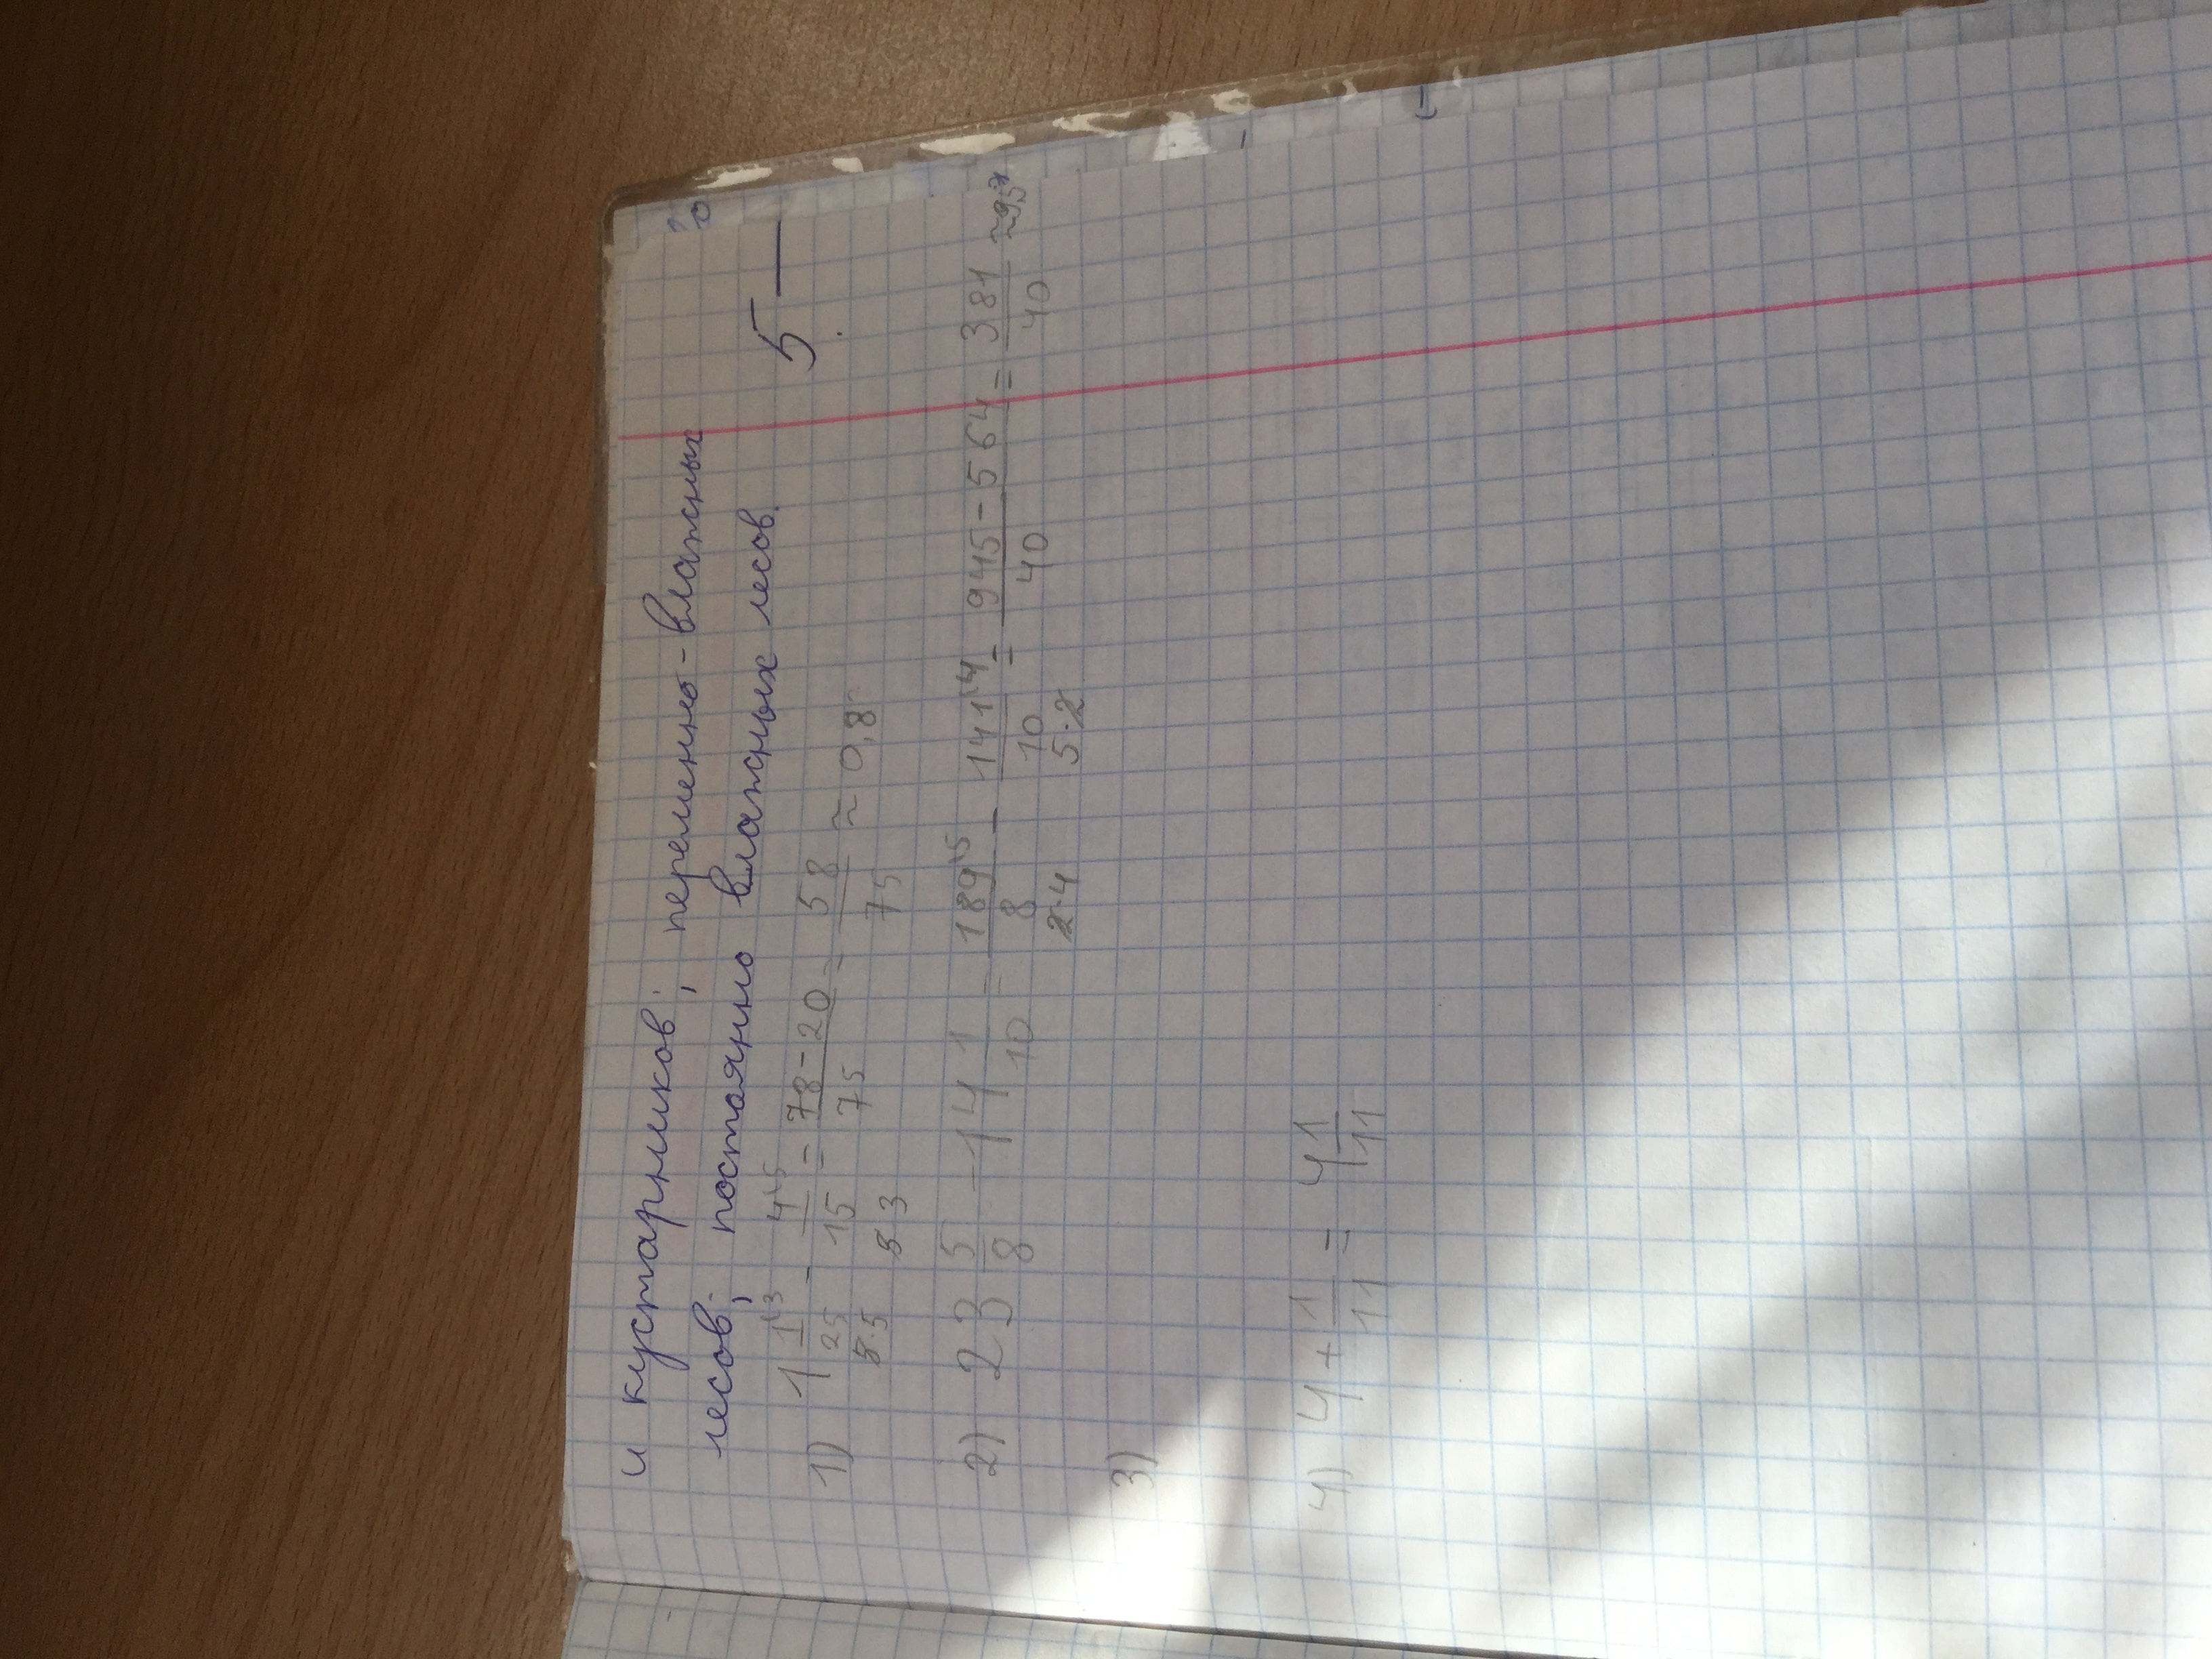 и кустарников; переменно-влажных
лесов; постоянно влажных лесов.
5 —
1) 1 1/25 \3 - 4/15 \5 = 78-20/75 = 58/75 ≈ 0,8
5·5 5·3
2) 23 5/8 - 14 1/10 = 189/8 \5 - 141/10 \4 = 945-564/40 = 381/40
2·4 5·2
3)
4) 4 + 1/11 = 4 1/11